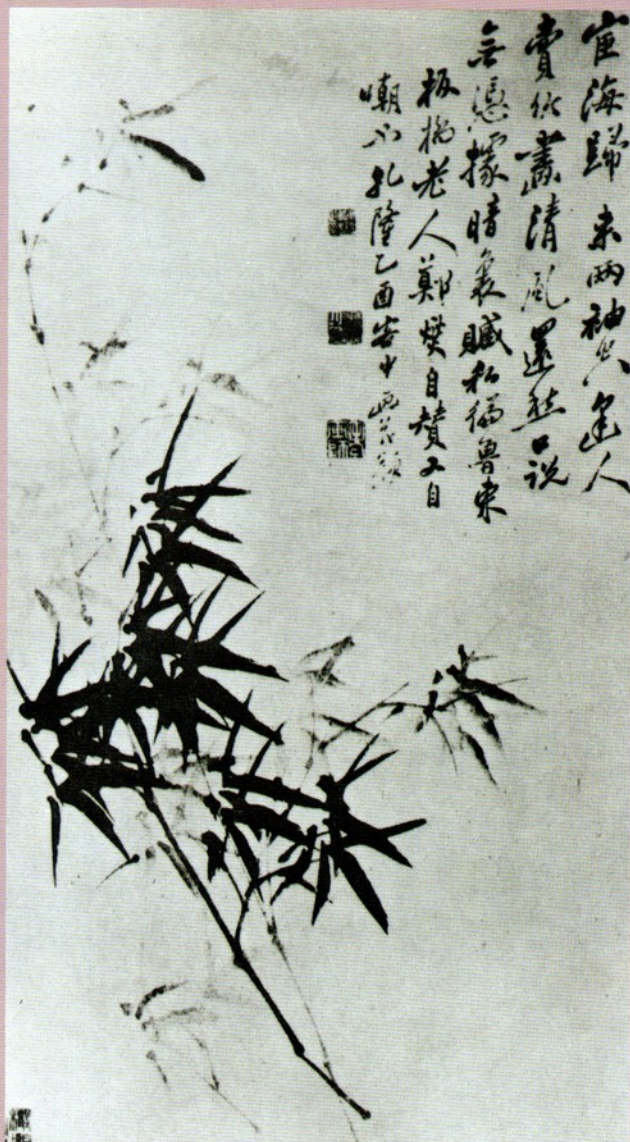 宦海歸來兩袖空逢人
賣竹畫清風還愁口說
無憑據暗裏贓私徧魯東
板橋老人鄭燮自贊又自
嘲也乾隆乙酉客中畫并題